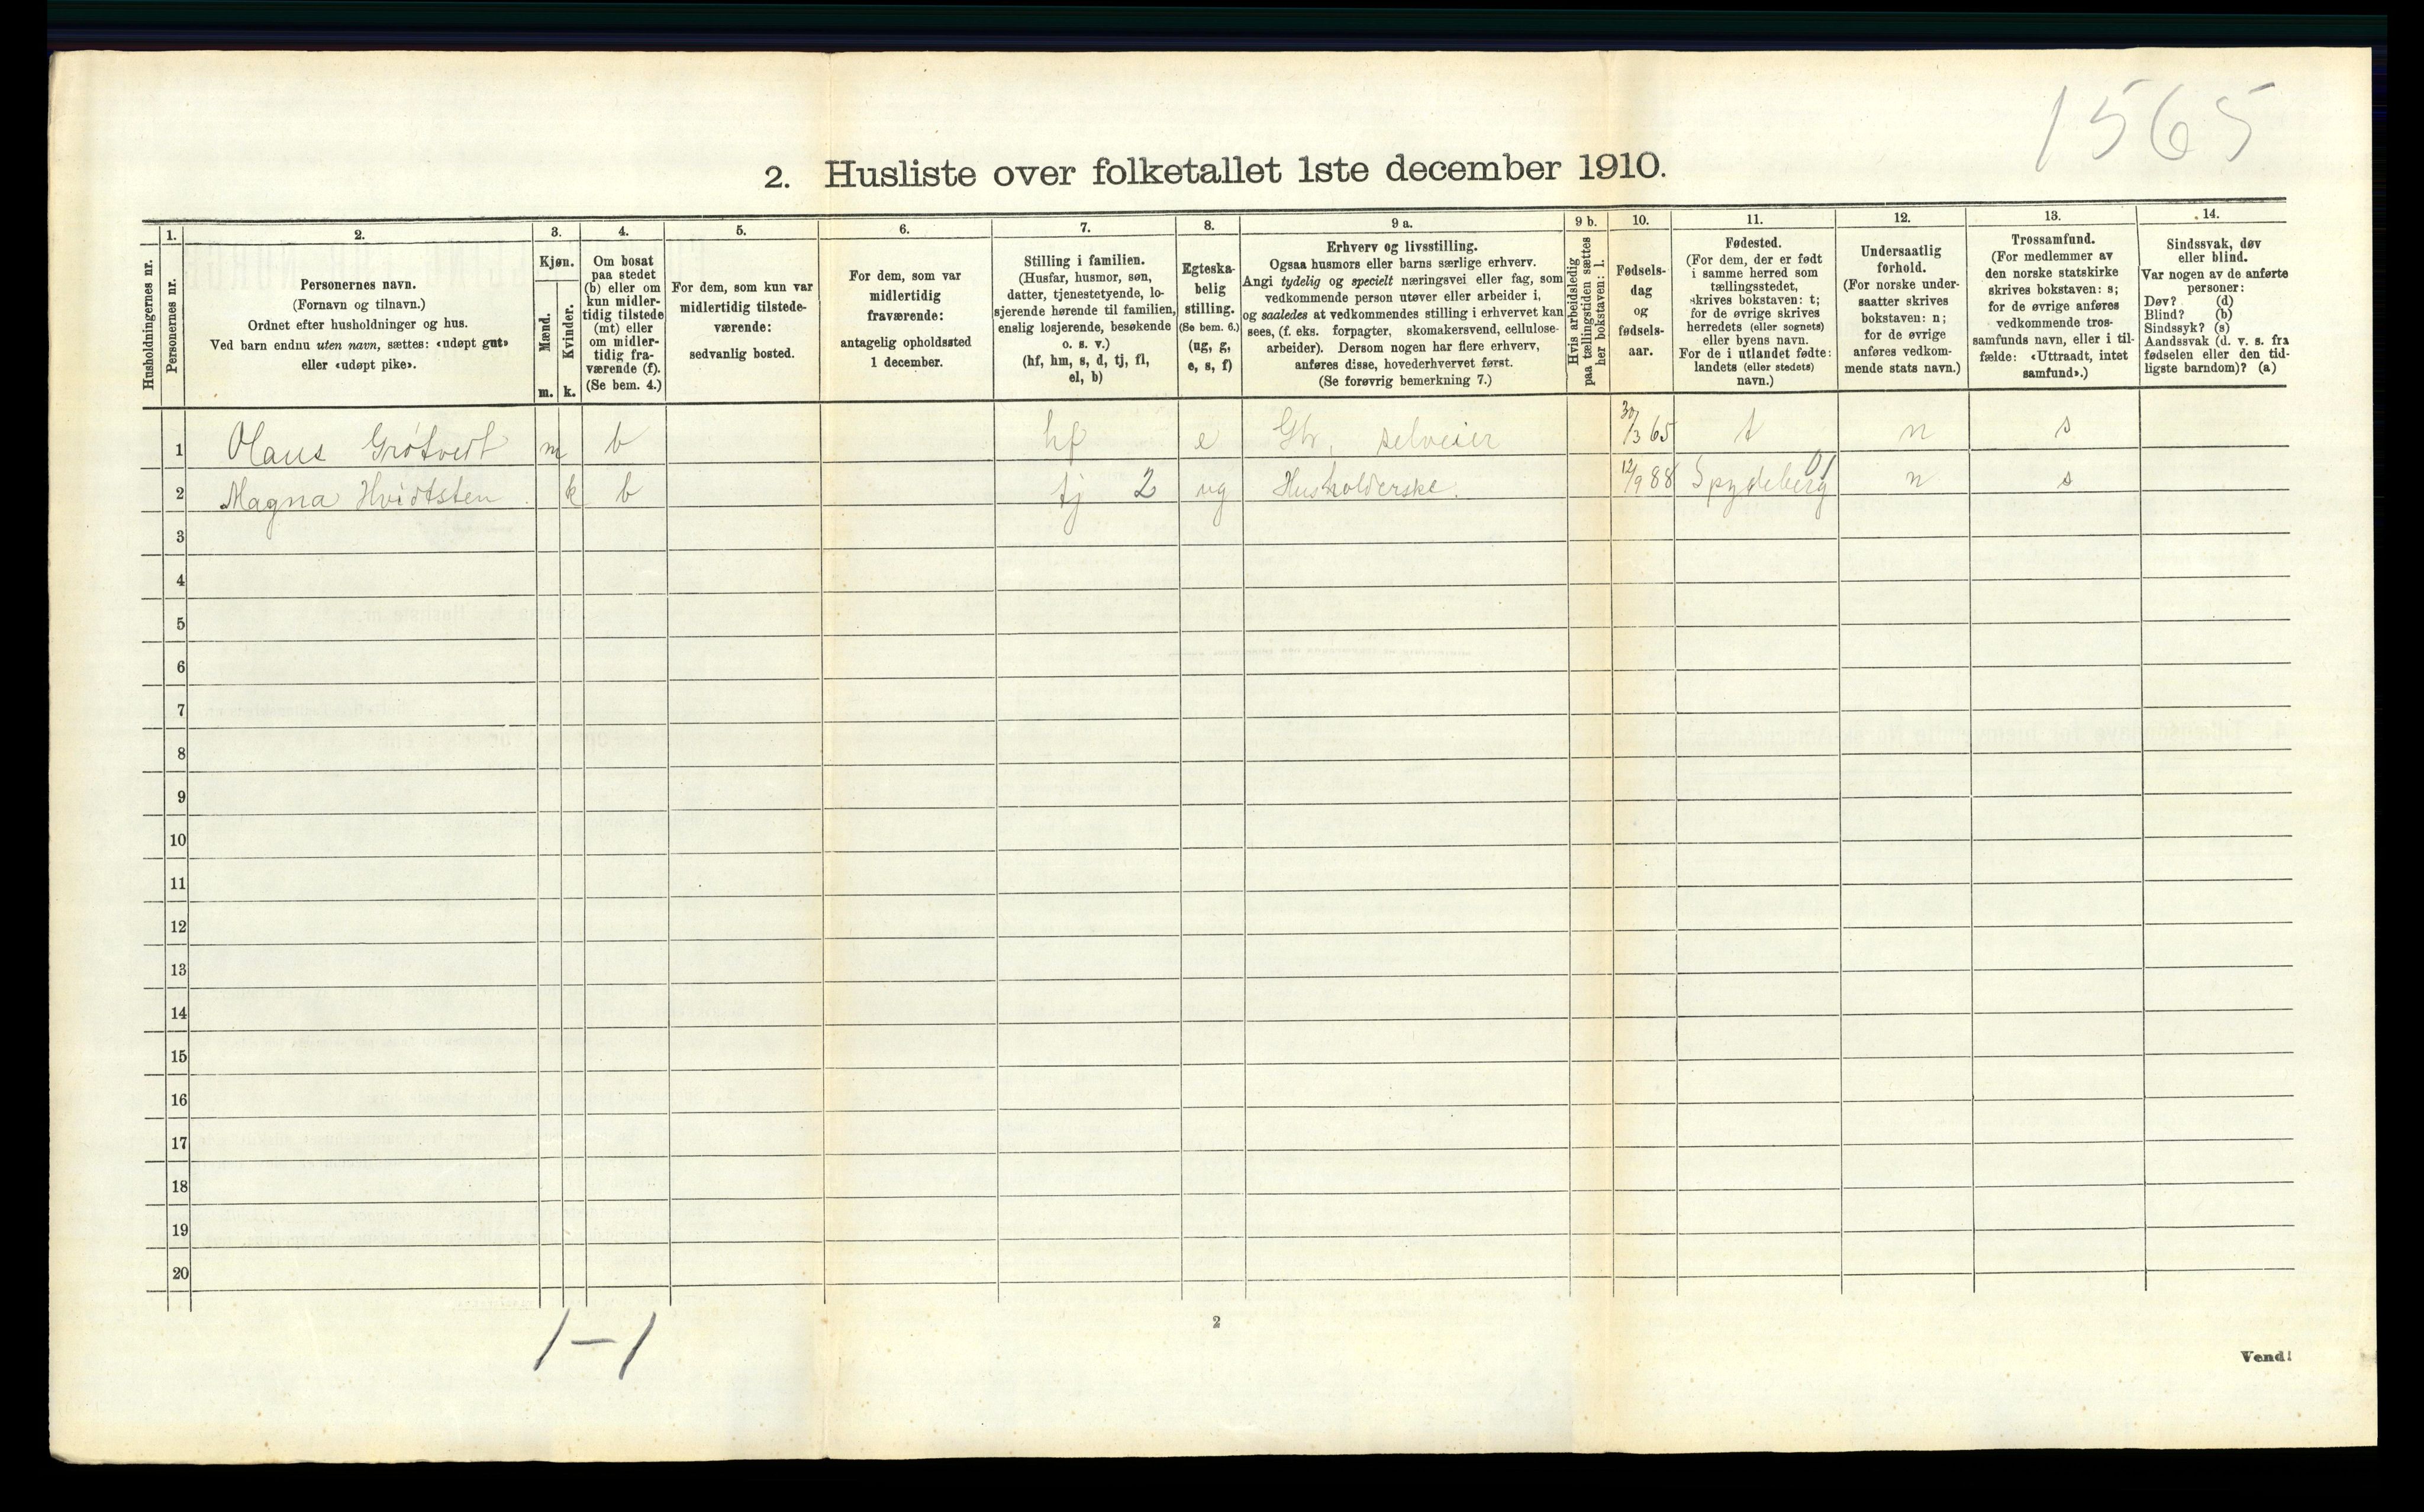 1565
2. Husliste over folketallet 1ste december 1910.
Husholdningernes nr.
1.
Personernes nr.
2.
Personernes navn.
(Fornavn og tilnavn.)
Ordnet efter husholdninger og hus.
Ved barn endnu uten navn, sættes: «udøpt gut»
eller «udøpt pike».
3.
Kjøn.
Mænd.
m.
Kvinder.
k.
4.
Om bosat
paa stedet
(b) eller om
kun midler-
tidig tilstede
(mt) eller
om midler-
tidig fra-
værende (f).
(Se bem. 4.)
5.
For dem, som kun var
midlertidig tilstede-
værende:
sedvanlig bosted.
6.
For dem, som var
midlertidig
fraværende:
antagelig opholdssted
1 december.
7.
Stilling i familien.
(Husfar, husmor, søn,
datter, tjenestetyende, lo-
sjerende hørende til familien,
enslig losjerende, besøkende
o. s. v.)
(hf, hm, s, d, tj, fl,
el, b)
8.
Egteska-
belig
stilling.
(Se bem. 6.)
(ug, g,
e, s, f)
9 a.
Erhverv og livsstilling.
Ogsaa husmors eller barns særlige erhverv.
Angi tydelig og specielt næringsvei eller fag, som
vedkommende person utøver eller arbeider i,
og saaledes at vedkommendes stilling i erhvervet kan
sees, (f. eks. forpagter, skomakersvend, cellulose-
arbeider). Dersom nogen har flere erhverv,
anføres disse, hovederhvervet først.
(Se forøvrig bemerkning 7.)
9 b.
Hvis arbeidsledig
paa tællingstiden sættes
her bokstaven: l.
10.
Fødsels-
dag
og
fødsels-
aar.
11.
Fødested.
(For dem, der er født
i samme herred som
tællingsstedet,
skrives bokstaven: t;
for de øvrige skrives
herredets (eller sognets)
eller byens navn.
For de i utlandet fødte:
landets (eller stedets)
navn.)
12.
Undersaatlig
forhold.
(For norske under-
saatter skrives
bokstaven: n;
for de øvrige
anføres vedkom-
mende stats navn.)
13.
Trossamfund.
(For medlemmer av
den norske statskirke
skrives bokstaven: s;
for de øvrige anføres
vedkommende tros-
samfunds navn, eller i til-
fælde: «Uttraadt, intet
samfund».)
14.
Sindssvak, døv
eller blind.
Var nogen av de anførte
personer:
Døv? (d)
Blind? (b)
Sindssyk? (s)
Aandssvak (d. v. s. fra
fødselen eller den tid-
ligste barndom)? (a)
1 Olaus Grøtvedt m b hf e Gbr. selveier 30/3 65 t n s
2 Magna Hvidtsten k b tj 2 ug Husholderske. 12/9 88 Spydeberg 01 n s
3
4
5
6
7
8
9
10
11
12
13
14
15
16
17
18
19
20
1-1
2
Vend!